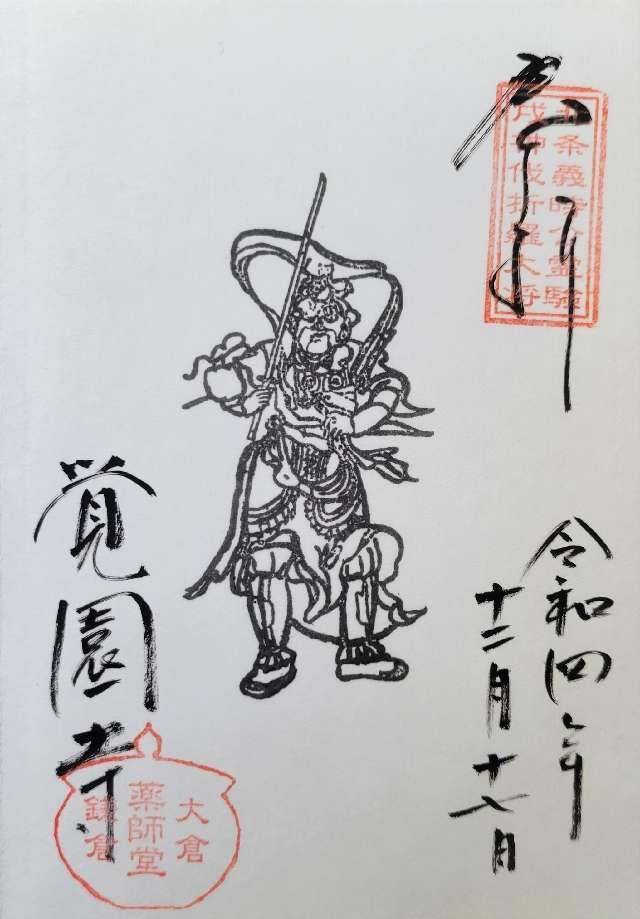 奉拝
北条義時公霊験
戌神伐折羅大将
令和四年
十二月十八日
覚園寺
大倉
薬師堂
鎌倉